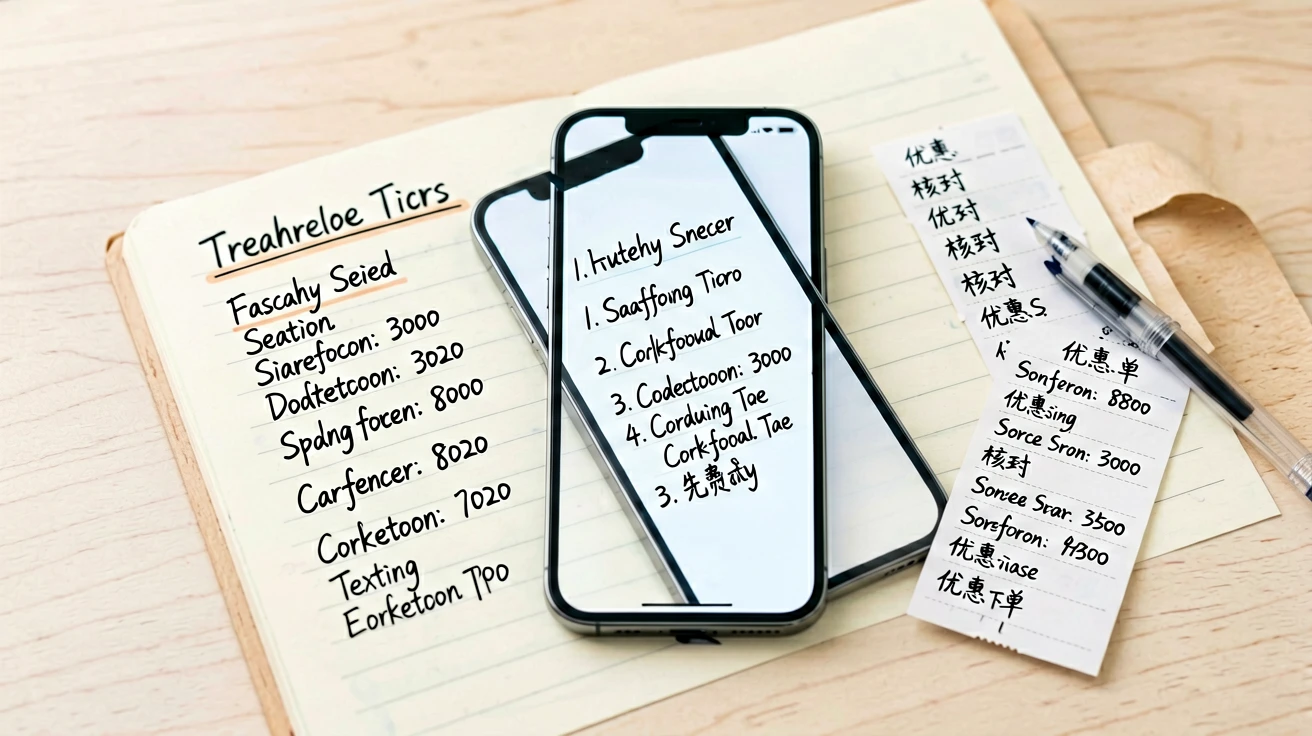 Treahreloe Ticrs
Fascahy Seied
Seation
Siarefocon: 3000
Dodtetcoon: 3020
Spdng focen: 8000
Carfencer: 8020
Corketoon: 7020
Texting
Eorketoon
1. hutehy Snecer
1. Saaffoing Tioro
2. Corkfoowd Toor
3. Codestooon: 3000
4. Corduing Tae
Corkfooal. Tae
3. 先
优惠
核对
优对
核对
核对
优惠S
优惠单
Sonferon: 8800
优惠sing
Sorce Sron: 3000
核对
Sonree Srar. 3500
Soresforon:
优惠
优惠下单